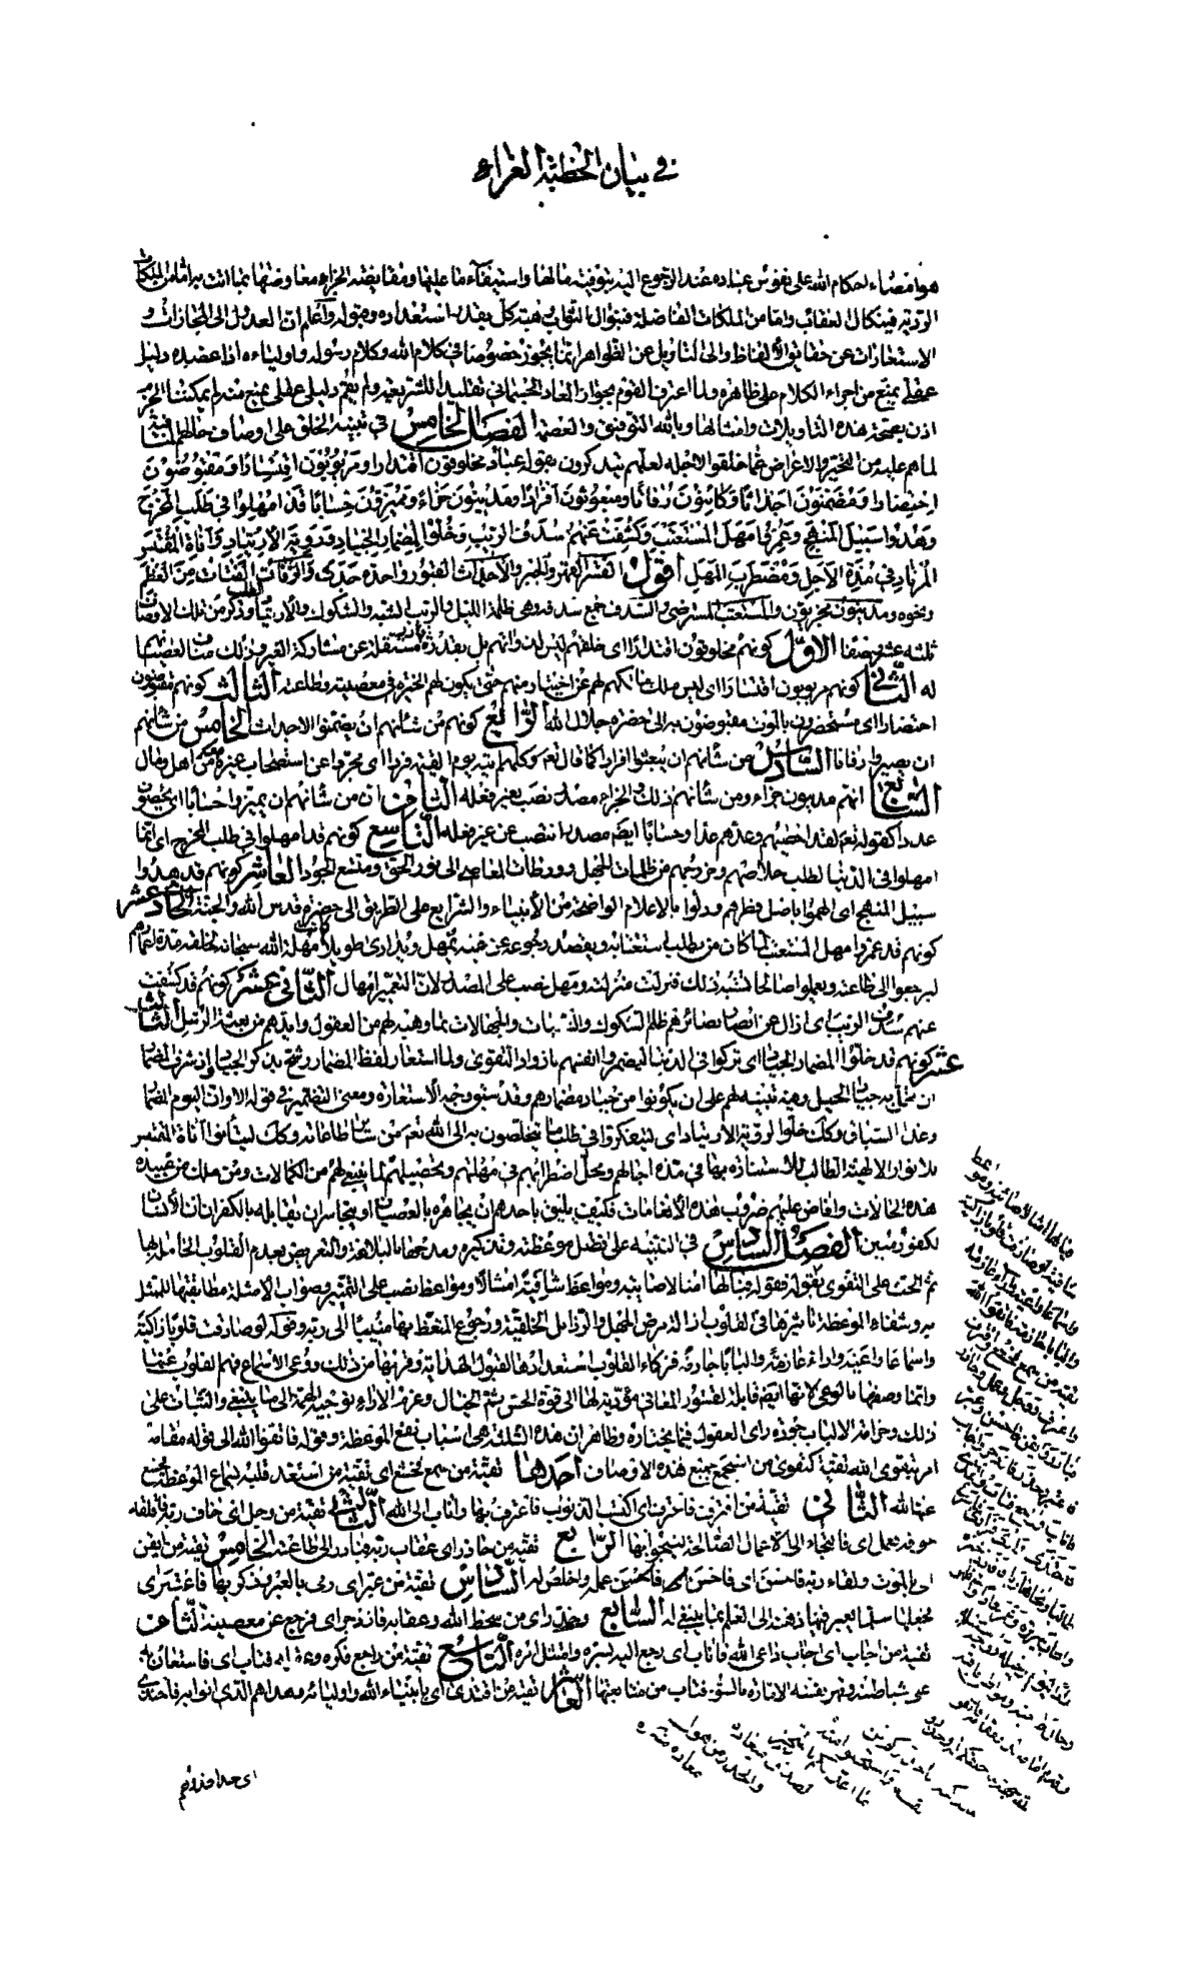 في بيان الخطبة الغراء
هو امضاء احكام الله على نفوس عباده عند الرجوع اليه بتوفيته مالها واستيفاء ما عليها ومقابضته الجزاء معاوضتها بما اتت به اما من الملكات
الردية فينكال العقاب واما من الملكات الفاضلة فبنوال الثواب هبته كل بقدر استعداده وقبوله واعلم ان العدول الى المجازات و
الاستعارات عن حقايق الالفاظ والى التاويل عن الظواهر انما يجوز خصوصا في كلام الله وكلام رسوله واوليائه اذا عضده دليل
عقلي يمنع من اجراء الكلام على ظاهره ولما اعترف القوم بجواز المعاد الجسماني تقليدا للشريعة ولم يقم دليل عقلي يمنع منه لم يمكننا الجزم
اذن بصحة هذه التاويلات وامثالها وبالله التوفيق والعصمة الفصل الخامس في تنبيه الخلق على اوصاف حالهم المنافية
لما هم عليه من التجبر والاعراض عما خلقوا لاجله لعلهم يتذكرون بقوله عباد مخلوقون اقتدارا ومربوبون اقتسارا ومقبوضون
احتضارا ومضمنون اجداثا وكائنون رفاتا ومبعوثون افرادا ومدينون جزاء ومميزون حسابا قد امهلوا في طلب المخرج
وهدوا سبيل المنهج وعمروا مهل المستعتب وكشفت عنهم سدف الريب وخلوا لمضمار الجياد وروية الارتياد واناة المقتبس
المرتاد في مدة الاجل ومضطرب المهل اقول القسر القهر والجبر والاجداث القبور واحده جدث والرفات الفتات من العظم
ونحوه ومدينون مجزيون والمستعتب المسترضي والسدف جمع سدفة وهي ظلمة الليل والريب الشبه والشكوك والارتياد الطلب وذكر من تلك الاوصاف
ثلثة عشر وصفا الاول كونهم مخلوقون اقتدارا اى خلقهم ليس لذواتهم بل بقدرة قادر مستقلة عن مشاركة الغير وذلك مناف لعصيانهم
له الثاني كونهم مربوبون اقتسارا اى ليس ملك مالكهم لهم عن اختيار منهم حتى يكون لهم الخيرة في معصيته وطاعته الثالث كونهم مقبوضون
احتضارا اى مستحضرون بالموت مقبوضون به الى حضرة جلال الله الرابع كونهم من شانهم ان يضمنوا الاجداث الخامس من شانهم
ان يصيروا رفاتا السادس من شانهم ان يبعثوا افرادا كما قال تع وكلهم آتيه يوم القيمة فردا اى مجردا عن استصحاب غيره معه من اهل ومال
السابع انهم مدينون جزاء ومن شانهم ذلك والجزاء مصدر نصب بغير فعله الثامن ان من شانهم ان يميزوا حسابا اى يحصون
عددا كقوله تع لقد احصيهم وعدهم عدا وحسابا ايضا مصدر انتصب عن غير فعله التاسع كونهم قد امهلوا في طلب المخرج اى انما
امهلوا في الدنيا لطلب خلاصهم وخروجهم من ظلمات الجهل وورطات المعاصي الى نور الحق ومتسع الجود العاشر كونهم قد هدوا
سبيل المنهج اى الهموا باصل فطرهم ودلوا بالاعلام الواضحة من الانبياء والشرايع على الطريق الى حضرة قدس الله والجنة الحادي عشر
كونهم قد عمروا مهل المستعتب لما كان من يطلب استعتابه ويقصد رجوعه عن غيه يمهل ويدارى طويلا كانت مهلة الله سبحانه لخلقه مدة اعمارهم
ليرجعوا الى طاعته ويعملوا صالحا تشبه ذلك فنزلت منزلته ومهل نصب على المصدر لان التعمير امهال الثاني عشر كونهم قد كشفت
عنهم سدف الريب اى ازال عن ابصار بصائرهم ظلم الشكوك والشبهات والجهالات بما وهبه لهم من العقول وايدهم من بعثة الرسل الثالث
عشر كونهم قد خلوا لمضمار الجياد اى تركوا في الدنيا ليضمروا انفسهم بازواد التقوى ولما استعار لفظ المضمار رشح بذكر الجياد اذ شرف المضمار
ان يحل به جياد الخيل وفيه تنبيه لهم على ان يكونوا من جياد مضمارهم وقد سبق وجه الاستعارة ومعنى التضمير في قوله الا وان اليوم المضمار
وغدا السباق وكذلك خلوا لروية الارتياد اى ليتفكروا في طلب ما يتخلصون به الى الله تع من سائر طاعاته وكذلك ليتأنوا اناة المقتبس
للانوار الالهية الطالب للاستنارة بها في مدة اجالهم ومحل اضطرابهم في مهلتهم وتحصيلهم لما ينبغي لهم من الكمالات ومن ملك من عبيده
هذه الحالات وافاض عليهم ضروب هذه الانعامات فكيف يليق باحدهم ان يجاهره بالعصيان او يتجاسر ان يقابله بالكفران ان الانسان
لكفور مبين الفصل السادس في التنبيه على فضل موعظته وتذكيره ومدحها بالبلاغة والتعريض بعدم القلوب الحاملة لها
ثم الحث على التقوى بقوله فيا لها امثالا صائبة ومواعظ شافية امثالا ومواعظ نصب على التمييز وصواب الامثلة مطابقتها للممثل
به وشفاء الموعظة تاثيرها في القلوب ازالة مرض الجهل والرذائل الخلقية ورجوع المتعظ بها منيبا الى ربه وقوله لو صادفت قلوبا زاكية
واسماعا واعية واراء عازمة والبابا حازمة فزكاء القلوب استعدادها لقبول الهداية وقربها من ذلك ووعي الاسماع فهم القلوب عنها
وانما وصفها بالوعي لانها ايضا قابلة لقشور المعاني مؤدية لها الى قوة الحس ثم الخيال وعزم الاراء توجيه الهمة الى ما ينبغي والثبات على
ذلك وحزامة الالباب جودة راى العقول فيما يختاره وظاهر ان هذه الثلثة هي اسباب نفع الموعظة وقوله فاتقوا الله الى قوله مقامه
امر بتقوى الله تقية كتقوى من استجمع جميع هذه الاوصاف احدها تقية من سمع فخشع اى تقية من استعد قلبه لسماع الموعظة فخشع
عنها لله الثاني تقية من اقترف فاعترف اى اكتسب الذنوب فاعترف بها واناب الى الله الثالث تقية من وجل اى خاف ربه فاقلقه
خوفه فعمل اى فالتجاء الى الاعمال الصالحة لينجو بها الرابع تقية من حاذر اى عقاب ربه فبادر الى طاعته الخامس تقية من ايقن
اى بالموت ولقاء ربه فاحسن اى فاخلص له السادس تقية من عبر اى رمى بالعبر فذكر بها فاعتبر اى
السابع وحذر اى من سخط الله وعقابه فازدجر اى فرجع عن معصيته الثامن
تقية من اجاب اى اجاب داعى الله فاناب اى رجع اليه بسره وامتثال امره التاسع تقية من راجع فكره وعقله فتاب اى فاستعان به
على شياطينه وقهر نفسه الامارة بالسوء فتاب من متابعتها العاشر تقية من اقتدى اى بانبياء الله واوليائه وهداهم الذى اتوا به فاحتذى
اى حذا حذوهم
فيا لها امثالا صائبة ومواعظ
شافية لو صادفت قلوبا زاكية
واسماعا واعية واراء عازمة
والبابا حازمة فاتقوا الله
تقية من سمع فخشع واقترف
فاعترف ووجل فعمل وحاذر
فبادر وايقن فاحسن وعبر